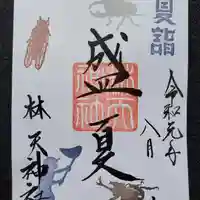 夏詣
令和元年
八月
盛夏
林 天神社